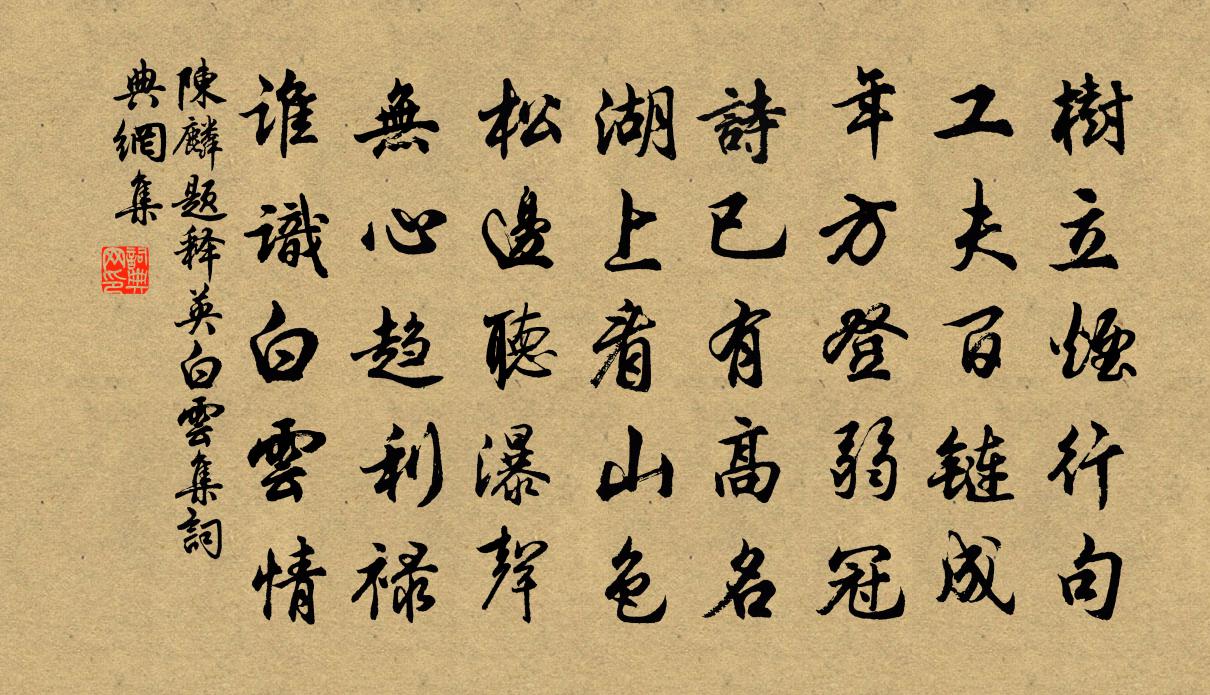 樹立煙行句
工夫百鏈成
年方登弱冠
詩已有高名
湖上看山色
松邊聽瀑聲
無心趨利祿
誰識白雲情
陳麟題释英白雲集詞
典網集
詞典網印